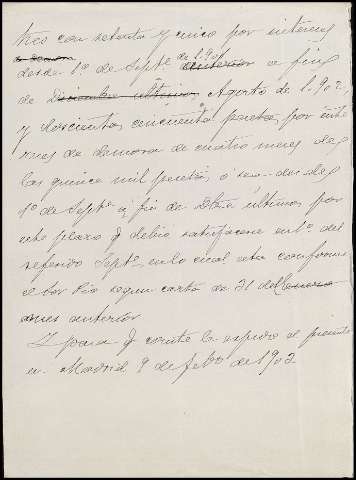 tres con setenta y cinco por interes
de demora
desde 1º de Septe de 1.901 anterior a fin
de Diciembre último Agosto de 1.902,
y doscientas cincuenta pesetas por interes
mes de demora de cuatro meses de
las quince mil pesetas, o sea desde
1º de Septe a fin de Dbre último por
este plazo q debió satisfacerse en 1º del
referido Septe en lo cual esta conforme
el Sor Rio segun carta de 31 del Enero
mes anterior
Y para q conste la expido el presente
en Madrid 9 de febro de 1902